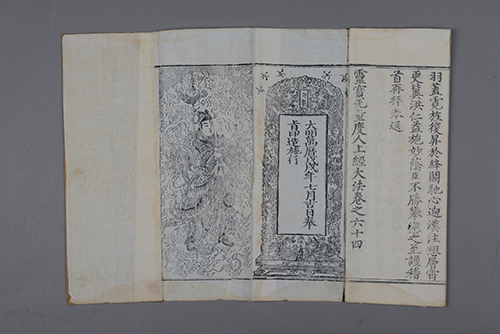 羽蓋霓旌復昇於絳闕馳心迥漢注想層霄
更冀洪仁益施妙蔭臣不勝攀戀之至謹稽
首再拜奉送
靈寶无量度人上經大法卷之六十四
大明萬曆戊戌年七月吉日奉
旨印造施行